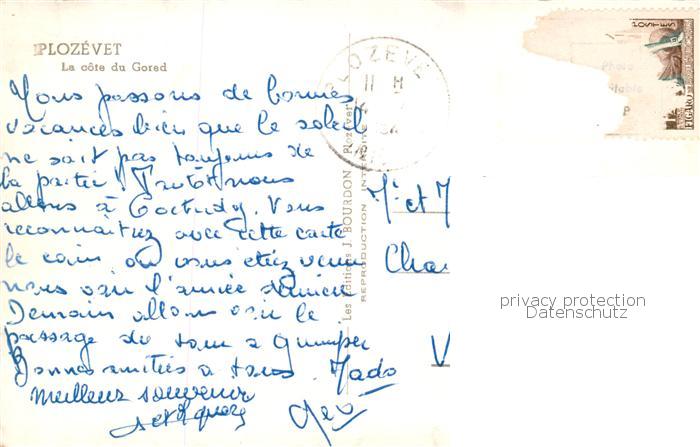 PLOZÉVET
La côte du Gored
Nous passons de bonnes
vacances bien que le soleil
ne soit pas toujours de
la partie ! Tantôt nous
allons à Loctudy. Vous
reconnaitrez avec cette carte
le coin où vous étiez venu
nous voir l'année dernière
Demain allons voir le
passage du tour à Quimper
Bonnes amitiés à tous. Mado
Meilleur souvenir
Géo
Les Editions J. BOURDON - Plozévet
REPRODUCTION INTERDITE
PLOZEVET
11 H
POSTES
FIGARO
Mr et M
Cha
V
privacy protection
Datenschutz